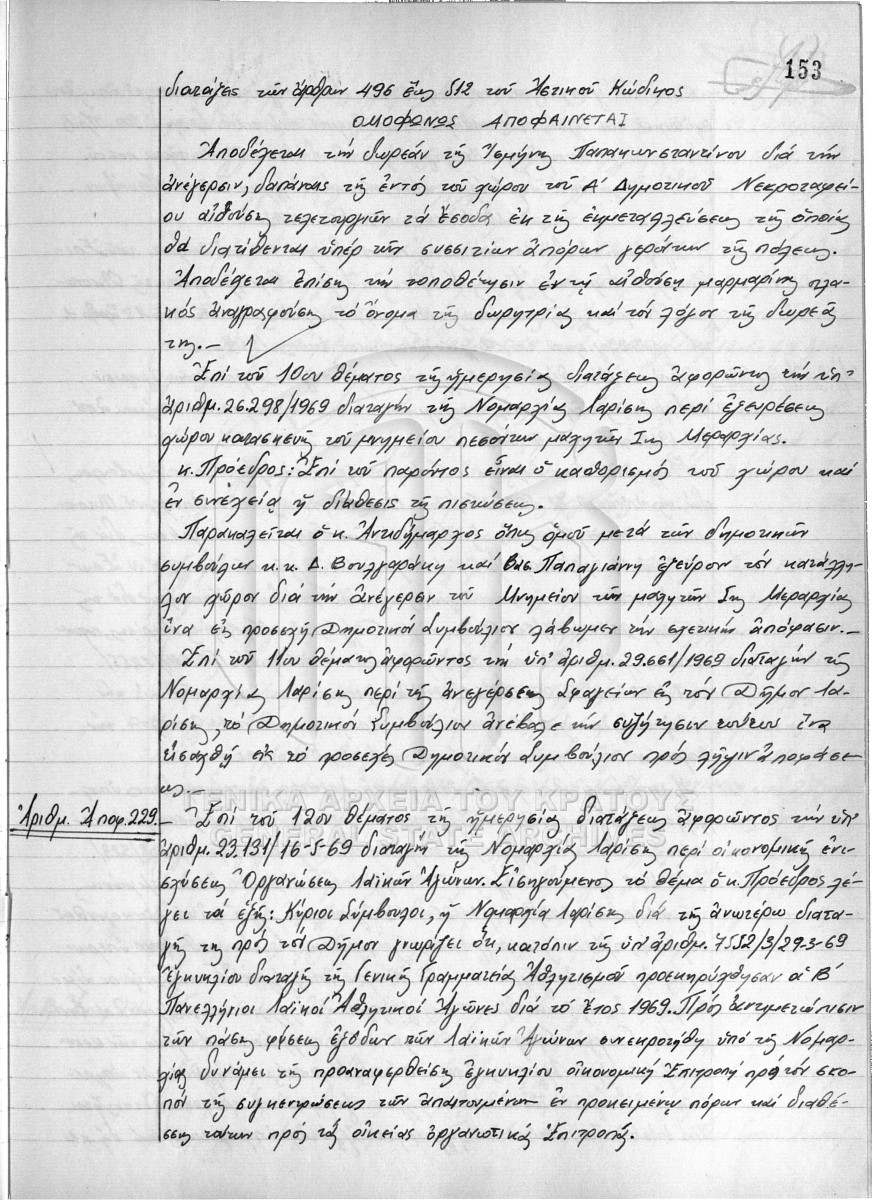 153
διατάξεις τῶν ἄρθρων 496 ἕως 512 τοῦ Ἀστικοῦ Κώδικος
ΟΜΟΦΩΝΩΣ ΑΠΟΦΑΙΝΕΤΑΙ
Ἀποδέχεται τήν δωρεάν τῆς Ἰσμήνης Παπακωνσταντίνου διά τήν
ἀνέγερσιν, δαπάναις της ἐντός τοῦ χώρου τοῦ Α' Δημοτικοῦ Νεκροταφεί-
ου αἰθούσης τελετουργιῶν τά ἔσοδα ἐκ τῆς ἐκμεταλλεύσεως τῆς ὁποίας
θά διατίθενται ὑπέρ τῶν συσσιτίων ἀπόρων γερόντων τῆς πόλεως.
Ἀποδέχεται ἐπίσης τήν τοποθέτησιν ἐν τῇ αἰθούσῃ μαρμαρίνης πλα-
κός ἀναγραφούσης τό ὄνομα τῆς δωρητρίας καί τόν λόγον τῆς δωρεᾶς
της.—
Ἐπί τοῦ 10ου θέματος τῆς ἡμερησίας διατάξεως ἀφορῶντος τήν ὑπ'
ἀριθμ. 26.298/1969 διαταγήν τῆς Νομαρχίας Λαρίσης περί ἐξευρέσεως
χώρου κατασκευῆς τοῦ μνημείου πεσόντων μαχητῶν Ιης Μεραρχίας.
κ. Πρόεδρος: Ἐπί τοῦ παρόντος εἶναι ὁ καθορισμός τοῦ χώρου καί
ἐν συνεχείᾳ ἡ διάθεσις τῆς πιστώσεως.
Παρακαλεῖται ὁ κ. Ἀντιδήμαρχος ὅπως ὁμοῦ μετά τῶν δημοτικῶν
συμβούλων κ.κ. Δ. Βουλγαράκη καί Βας. Παπαγιάννη ἐξεύρουν τόν κατάλλη-
λον χῶρον διά τήν ἀνέγερσιν τοῦ Μνημείου τῶν μαχητῶν Ιης Μεραρχίας
ἵνα εἰς προσεχῆ Δημοτικόν Συμβούλιον λάβωμεν τήν σχετικήν ἀπόφασιν.—
Ἐπί τοῦ 11ου θέματος ἀφορῶντος τήν ὑπ' ἀριθμ. 29.661/1969 διαταγήν τῆς
Νομαρχίας Λαρίσης περί τῆς ἀνεγέρσεως Σφαγείων εἰς τόν Δῆμον Λα-
ρίσης, τό Δημοτικόν Συμβούλιον ἀνέβαλε τήν συζήτησιν τούτου ἵνα
εἰσαχθῇ εἰς τό προσεχές Δημοτικόν Συμβούλιον πρός λῆψιν ἀποφάσε-
ως.—
ΓΕΝΙΚΑ ΑΡΧΕΙΑ ΤΟΥ ΚΡΑΤΟΥΣ
GENERAL STATE ARCHIVES
Ἀριθμ. Ἀποφ. 229.— Ἐπί τοῦ 12ου θέματος τῆς ἡμερησίας διατάξεως ἀφορῶντος τήν ὑπ'
ἀριθμ. 23.131/16-5-69 διαταγή τῆς Νομαρχίας Λαρίσης περί οἰκονομικῆς ἐνι-
σχύσεως Ὀργανώσεως Λαϊκῶν Ἀγώνων. Εἰσηγούμενος τό θέμα ὁ κ. Πρόεδρος λέ-
γει τά ἑξῆς: Κύριοι Σύμβουλοι, ἡ Νομαρχία Λαρίσης διά τῆς ἀνωτέρω διατα-
γῆς της πρός τόν Δῆμον γνωρίζει ὅτι, κατόπιν τῆς ὑπ' ἀριθμ. 7552/3/29-3-69
ἐγκυκλίου διαταγῆς τῆς Γενικῆς Γραμματείας Ἀθλητισμοῦ προεκηρύχθησαν οἱ Β'
Πανελλήνιοι Λαϊκοί Ἀθλητικοί Ἀγῶνες διά τό ἔτος 1969. Πρός ἀντιμετώπισιν
τῶν πάσης φύσεως ἐξόδων τῶν Λαϊκῶν Ἀγώνων συνεκροτήθη ὑπό τῆς Νομαρ-
χίας δυνάμει τῆς προαναφερθείσης ἐγκυκλίου οἰκονομική Ἐπιτροπή πρός τόν σκο-
πόν τῆς συγκεντρώσεως τῶν ἀπαιτουμένων ἐν προκειμένῳ πόρων καί διαθέ-
σεως τούτων πρός τάς οἰκείας ὀργανωτικάς Ἐπιτροπάς.